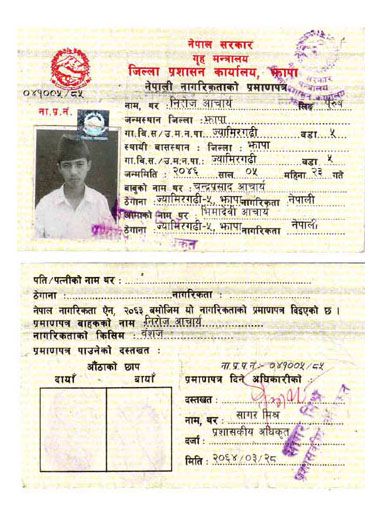 नेपाल सरकार
गृह मन्त्रालय
जिल्ला प्रशासन कार्यालय, झापा
नेपाली नागरिकताको प्रमाणपत्र
०४१००५/८५
ना.प्र.नं.
नाम, थर : निरोज आचार्य लिङ्ग पुरुष
जन्मस्थान जिल्ला : झापा
गा.वि.स./उ.म.न.पा.: ज्यामिरगढी वडा ५
स्थायी बासस्थान : जिल्ला : झापा
गा.वि.स./उ.म.न.पा.: ज्यामिरगढी वडा ५
जन्ममिति : २०४६ साल ०५ महिना २३ गते
बाबुको नाम थर : चन्द्रप्रसाद आचार्य
ठेगाना : ज्यामिरगढी-५, झापा नागरिकता नेपाली
आमाको नाम थर : भिमादेवी आचार्य
ठेगाना : ज्यामिरगढी-५, झापा नागरिकता नेपाली
पति/पत्नीको नाम थर :
ठेगाना : नागरिकता :
नेपाल नागरिकता ऐन, २०६३ बमोजिम यो नागरिकताको प्रमाणपत्र दिइएको छ ।
प्रमाणपत्र बाहकको नाम : निरोज आचार्य
नागरिकताको किसिम : वंशज
प्रमाणपत्र पाउनेको दस्तखत :
औंठाको छाप
दायाँ बायाँ
ना.प्र.प.नं.- ०४१००५/८५
प्रमाणपत्र दिने अधिकारीको
दस्तखत :
नाम, थर : सागर मिश्र
दर्जा : प्रशासकीय अधिकृत
मिति : २०६४/०३/२८